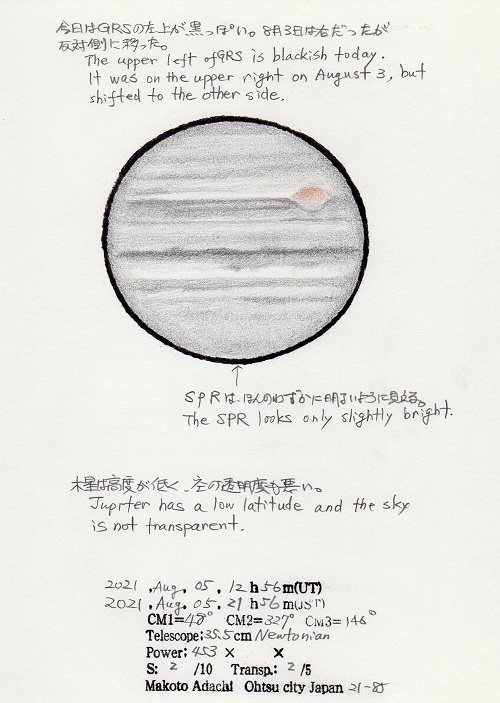 今日はGRSの左上が黒っぽい。8月3日は右だったが
反対側に移った。
The upper left of GRS is blackish today.
It was on the upper right on August 3, but
shifted to the other side.
SPRは、ほんのわずかに明るいように見える。
The SPR looks only slightly bright.
木星は高度が低く、空の透明度も悪い。
Jupiter has a low latitude and the sky
is not transparent.
2021 .Aug. 05, 12h56m(UT)
2021 .Aug. 05, 21h56m(JST)
CM1=48° CM2=327° CM3=146°
Telescope:35.5cm Newtonian
Power: 453 × ×
S: 2 /10 Transp.: 2 /5
Makoto Adachi Ohtsu city Japan 21-85